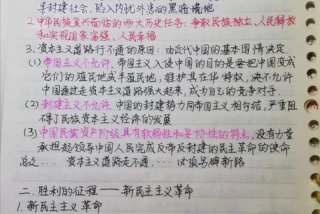 半封建社会, 陷入内忧外患的黑暗境地
2.中华民族复兴面临的两大历史任务: 争取民族独立、人民解放
和实现国家富强、人民幸福
3.资本主义道路行不通的原因: 由近代中国的基本国情决定
(1)帝国主义不允许, 帝国主义入侵中国的目的是要把中国变成
它们的殖民地或半殖民地, 维护其在华特权, 决不允许
中国通过走资本主义道路强大起来, 成为自己的竞争对手.
(2)封建主义不允许, 中国的封建势力同帝国主义相勾结, 严重阻
碍了民族资本主义经济的发展
(3)中国民族资产阶级具有软弱性和妥协性的特点, 没有力量
承担起领导中国人民完成反帝反封建的民主革命的使命
总之.... 资本主义道路走不通...
二. 胜利的征程——新民主主义革命
1.新民主主义革命